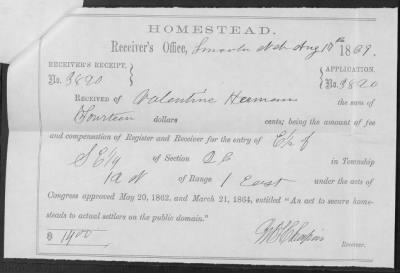 HOMESTEAD.
Receiver's Office, Lincoln Neb Aug 10th 1869.
RECEIVER'S RECEIPT, APPLICATION,
No. 3820 No. 3820
RECEIVED OF Valentine Hermann the sum of
Fourteen dollars cents; being the amount of fee
and compensation of Register and Receiver for the entry of E½ of
S E ¼ of Section in Township
of Range 1 East under the acts of
Congress approved May 20, 1862, and March 21, 1864, entitled "An act to secure home-
steads to actual settlers on the public domain."
$ 14 00
Receiver.